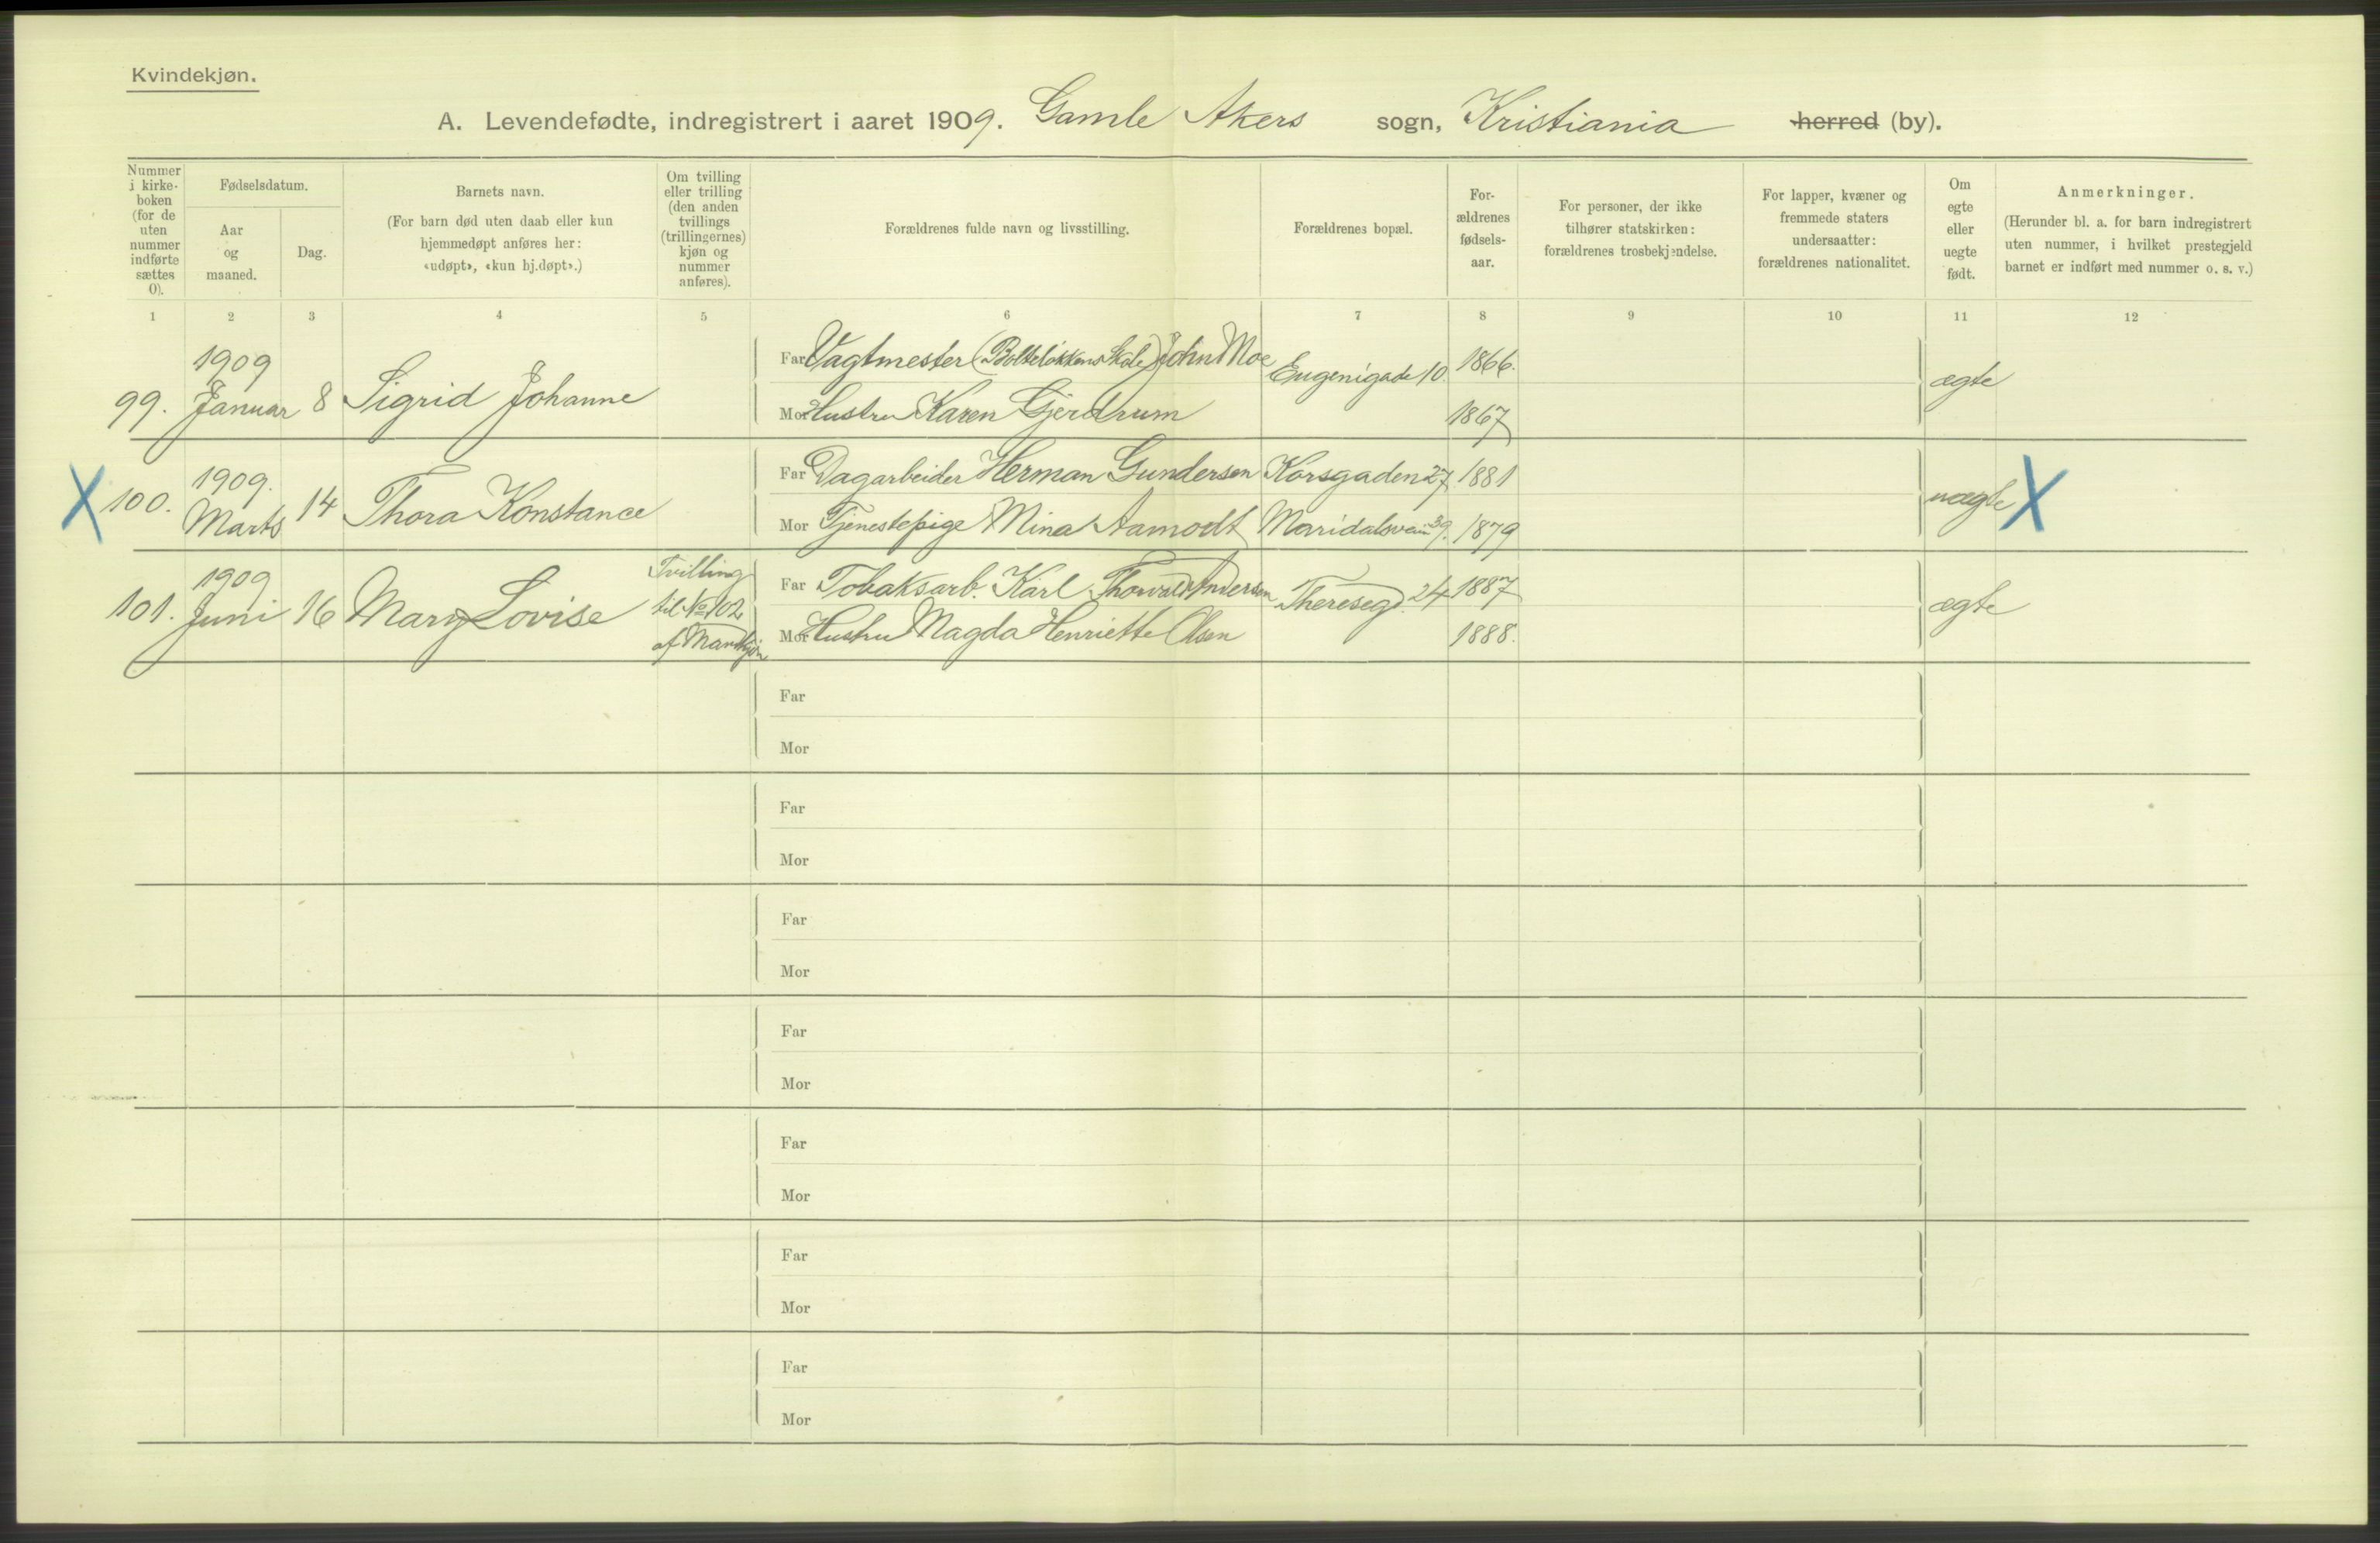 Kvindekjøn.
A. Levendefødte, indregistrert i aaret 1909. Gamle Akers sogn, Kristiania herred (by).
Nummer i kirke-boken (for de uten nummer indførte sættes 0).
Fødselsdatum.
Aar og maaned.
Dag.
Barnets navn.
(For barn død uten daab eller kun hjemmedøpt anføres her: «udøpt», «kun hj.døpt».)
Om tvilling eller trilling (den anden tvillings (trillingernes) kjøn og nummer anføres).
Forældrenes fulde navn og livsstilling.
Forældrenes bopæl.
For-ældrenes fødsels-aar.
For personer, der ikke tilhører statskirken: forældrenes trosbekjendelse.
For lapper, kvæner og fremmede staters undersaatter: forældrenes nationalitet.
Om egte eller uegte født.
Anmerkninger.
(Herunder bl. a. for barn indregistrert uten nummer, i hvilket prestegjeld barnet er indført med nummer o. s. v.)
1 2 3 4 5 6 7 8 9 10 11 12
1909
Far Vagtmester (Bolteløkkens Skole) John Moe Eugenigade 10. 1866.
99. Januar 8 Sigrid Johanne ægte
Mor Hustru Karen Gjerdrum 1867
1909.
Far Dagarbeider Herman Gundersen Korsgaden 27 1881
X 100. Marts 14 Thora Konstance uægte X
Mor Tjenestepige Mina Aamodt Maridalsvein 39. 1879
1909 Tvilling
Far Tobaksarb. Karl Thorvald Andersen Theresegd. 24 1887
101. Juni 16 Mary Lovise til No 102 ægte
af Mandkjøn Mor Hustru Magda Henriette Olsen 1888.
Far
Mor
Far
Mor
Far
Mor
Far
Mor
Far
Mor
Far
Mor
Far
Mor